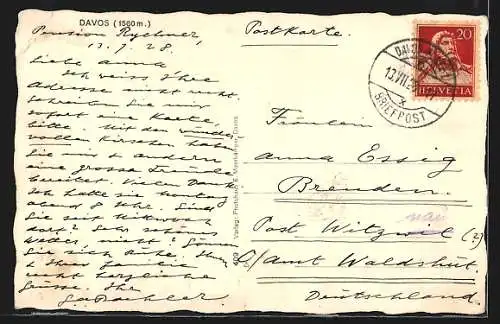 DAVOS (1560 m.)
Pension Rychner,
13.7.28.
Postkarte.
Liebe Anna
Ich weiss Ihre
Adresse nicht recht.
Schreiben Sie mir
sofort eine Karte,
bitte. Mit den wunder
vollen Kirschen haben
Sie uns andern
eine grosse Freude
bereitet. Vielen Dank.
Ich hatte sie
abend 8 Uhr. Sind
Sie seit Mittwoch
dort? Sehr schönes
Wetter, nicht?
Sie sich
Ihre
recht herzliche
Grüsse. Ihr
409 Verlag: Photohaus E. Meerkämper, Davos
20
HELVETIA
DAVOS
13.VII.28
BRIEFPOST
Fräulein
Anna Essig
Brenden.
Post Witzwil (?)
Amt Waldshut.
Deutschland.